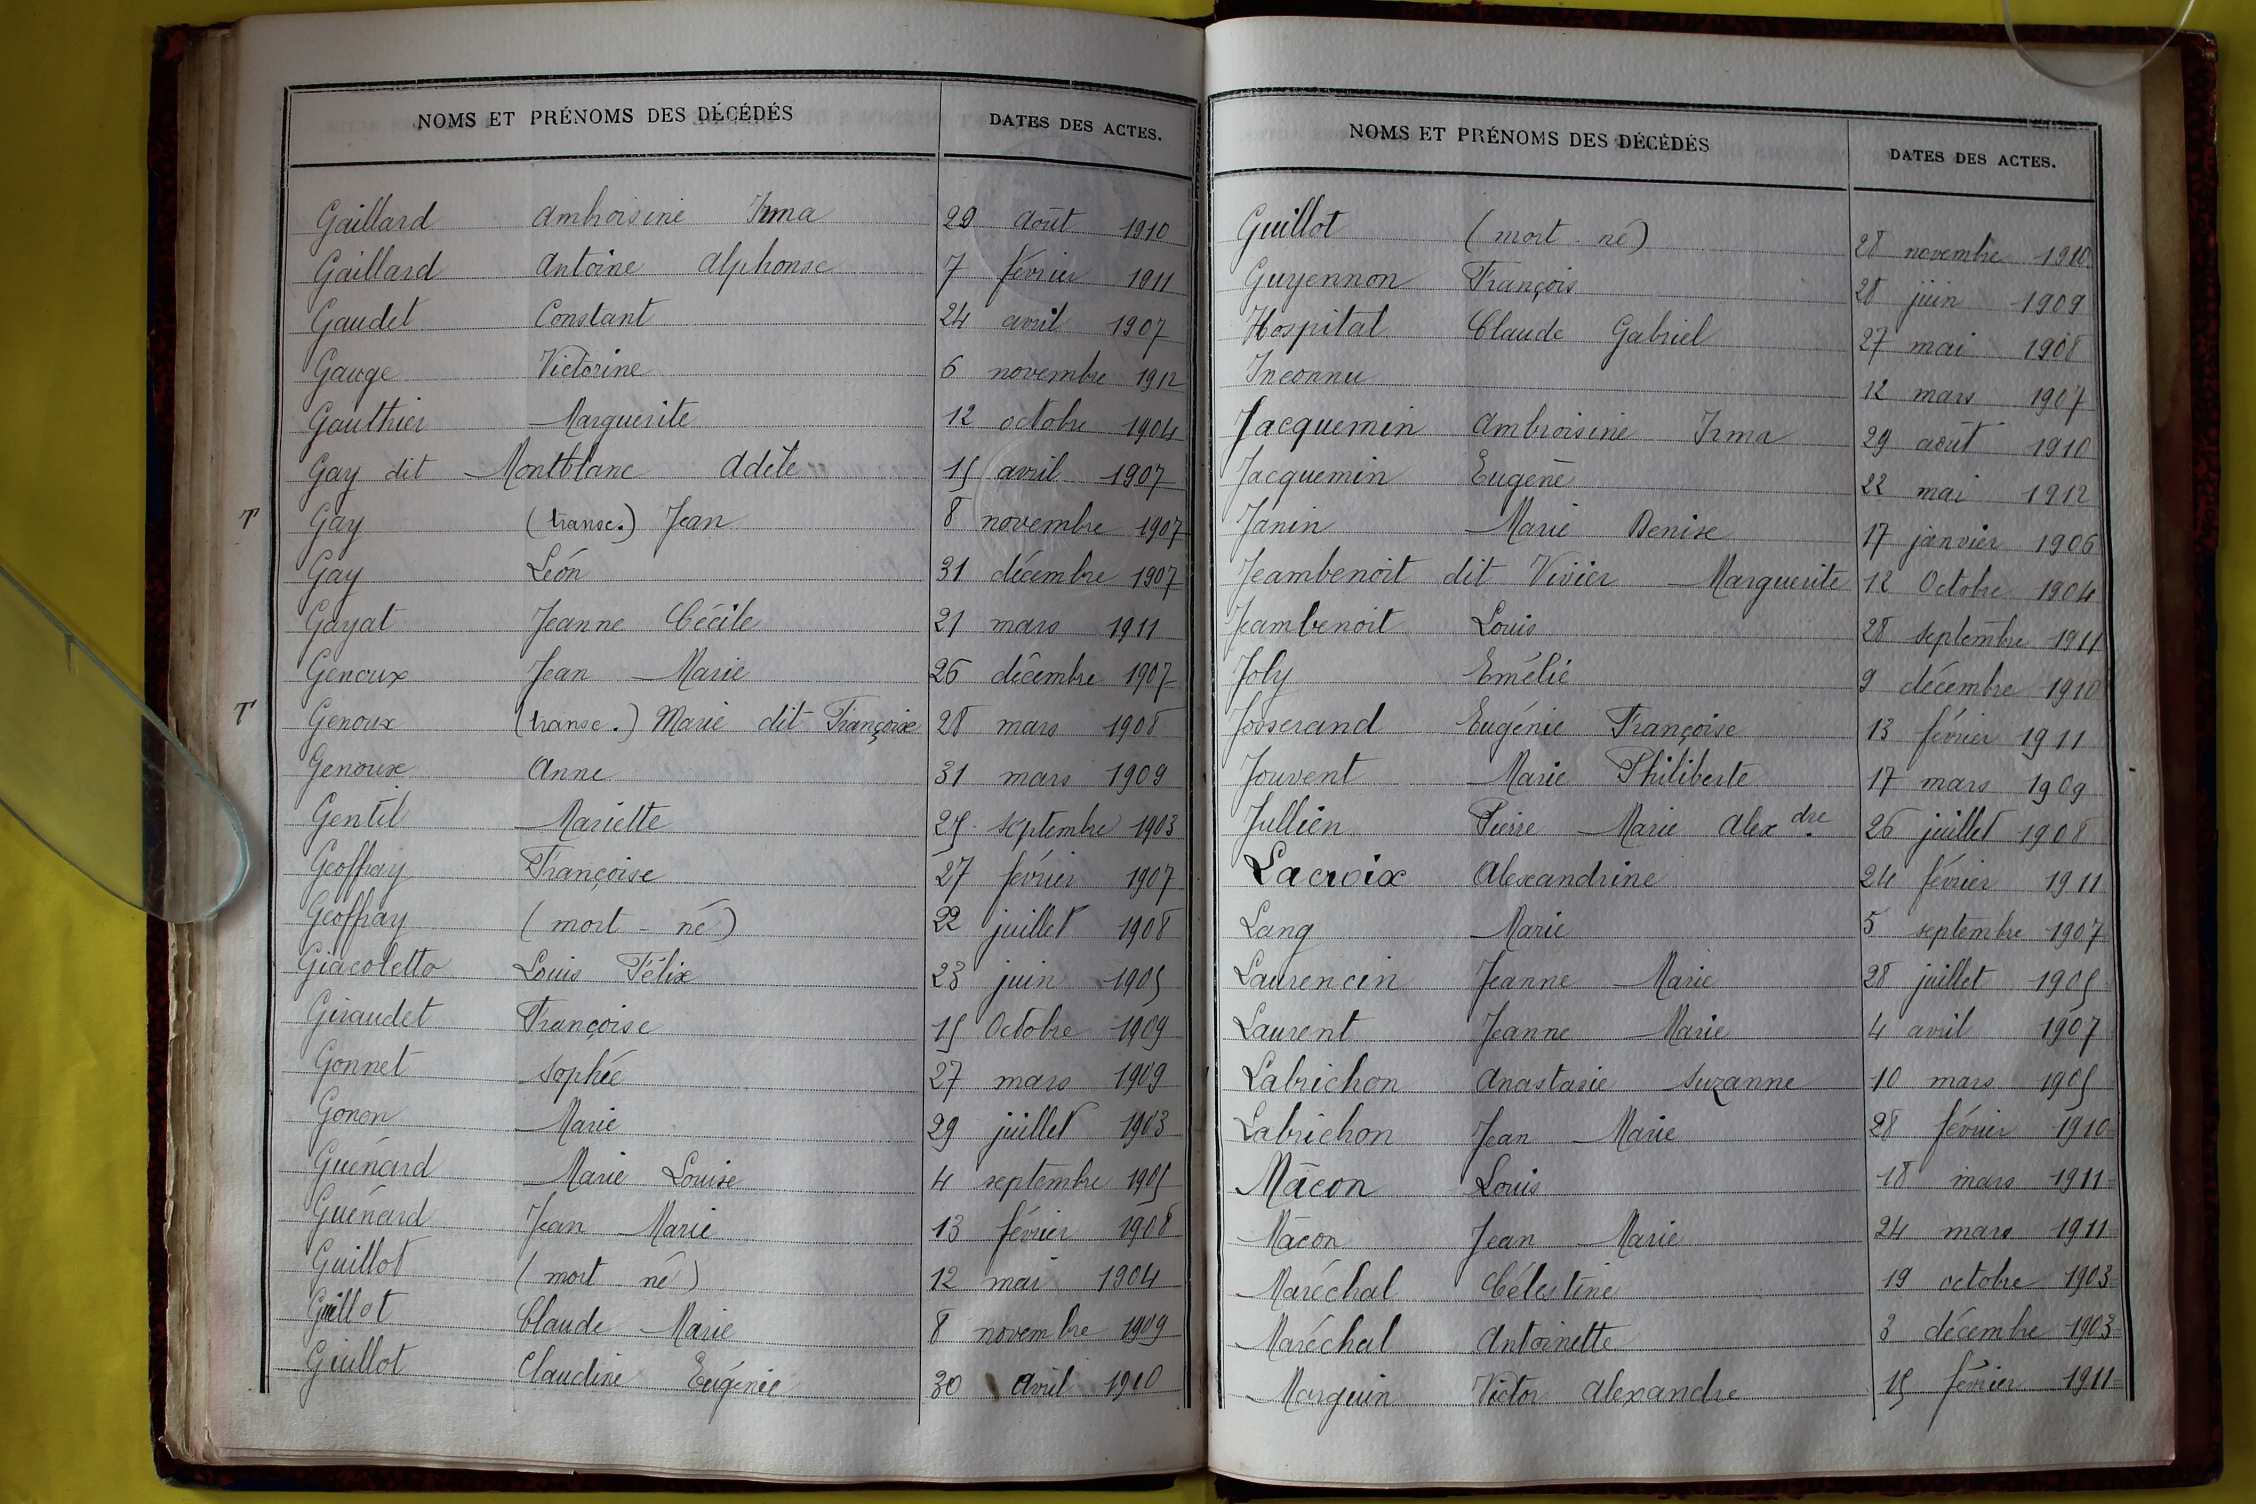 NOMS ET PRÉNOMS DES DÉCÉDÉS DATES DES ACTES.
Gaillard Ambroisine Irma 29 août 1910
Gaillard Antoine Alphonse 7 février 1911
Gaudet Constant 24 avril 1907
Gauge Victorine 6 novembre 1912
Gauthier Marguerite 12 octobre 1904
Gay dit Montblanc Adèle 15 avril 1907
T Gay (transc.) Jean 8 novembre 1907
Gay Léon 31 décembre 1907
Gayat Jeanne Cécile 21 mars 1911
Genoux Jean Marie 26 décembre 1907
T Genoux (transc.) Marie dit Françoise 28 mars 1908
Genoux Anne 31 mars 1909
Gentil Mariette 25 septembre 1903
Geoffray Françoise 27 février 1907
Geoffray (mort-né) 22 juillet 1908
Giacoletto Louis Félix 23 juin 1905
Giraudet Françoise 15 Octobre 1909
Gonnet Sophie 27 mars 1909
Gonon Marie 29 juillet 1903
Guénard Marie Louise 4 septembre 1905
Guénard Jean Marie 13 février 1908
Guillot (mort né) 12 mai 1904
Guillot Claude Marie 8 novembre 1909
Guillot Claudine Eugénie 30 Avril 1910
NOMS ET PRÉNOMS DES DÉCÉDÉS DATES DES ACTES.
Guillot (mort-né) 28 novembre 1910
Guyennon François 28 juin 1909
Hospital Claude Gabriel 27 mai 1908
Inconnu 12 mars 1907
Jacquemin Ambroisine Irma 29 août 1910
Jacquemin Eugène 22 mai 1912
Janin Marie Denise 17 janvier 1906
Jeambenoit dit Vivier Marguerite 12 Octobre 1904
Jeambenoit Louis 28 septembre 1911
Joly Emélie 9 décembre 1910
Josserand Eugénie Françoise 13 février 1911
Jouvent Marie Philiberte 17 mars 1909
Jullien Pierre Marie Alexdre 26 juillet 1908
Lacroix Alexandrine 24 février 1911
Lang Marie 5 septembre 1907
Laurencin Jeanne Marie 28 juillet 1905
Laurent Jeanne Marie 4 avril 1907
Labrichon Anastasie Suzanne 10 mars 1905
Labrichon Jean Marie 28 février 1910
Mâcon Louis 18 mars 1911
Mâcon Jean Marie 24 mars 1911
Maréchal Célestine 19 octobre 1903
Maréchal Antoinette 3 décembre 1903
Marguin Victor Alexandre 15 février 1911